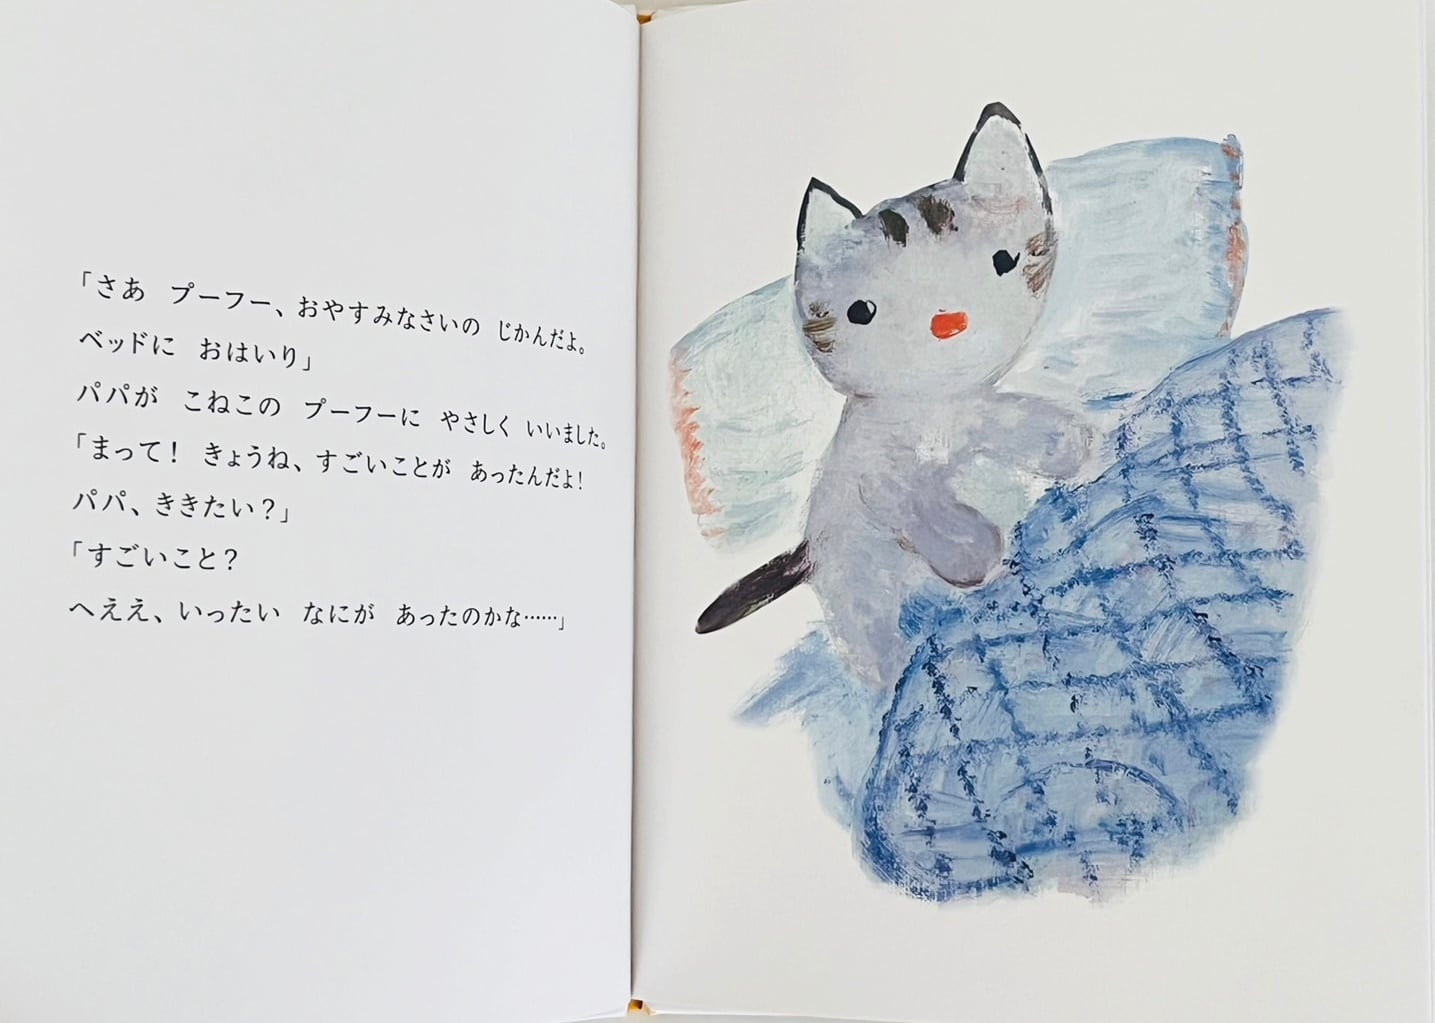 「さあ　プーフー、おやすみなさいの　じかんだよ。
ベッドに　おはいり」
パパが　こねこの　プーフーに　やさしく　いいました。
「まって！　きょうね、すごいことが　あったんだよ！
パパ、ききたい？」
「すごいこと？
へええ、いったい　なにが　あったのかな……」